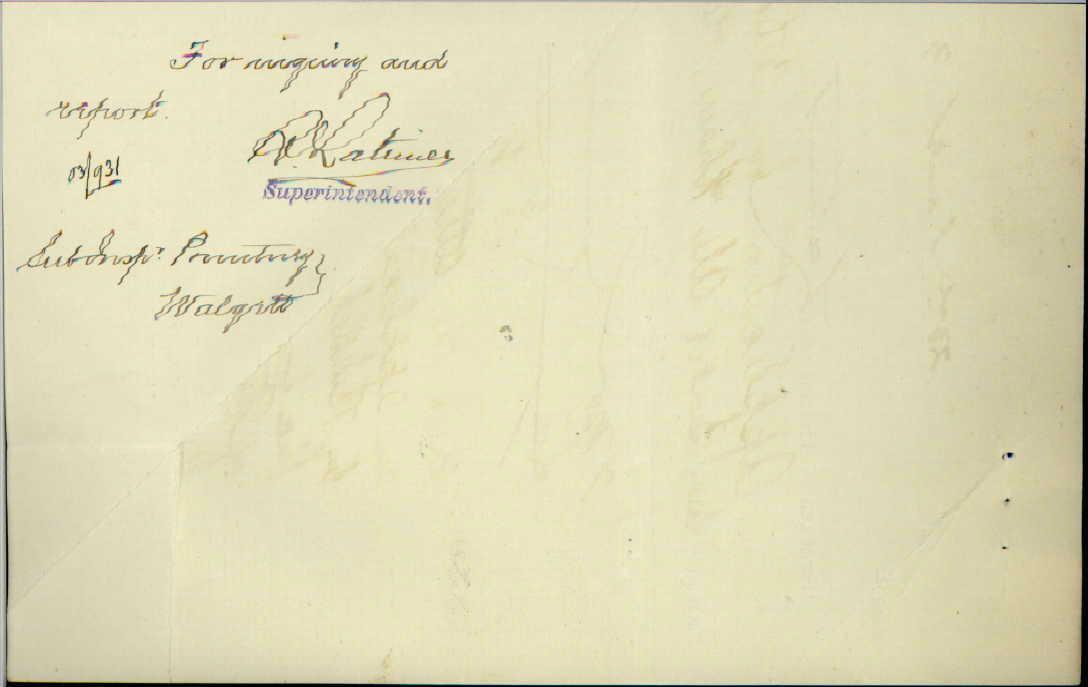 For inquiry and
report.
03/931
Latimer
Superintendent.
Sub Inspr.
Walgett